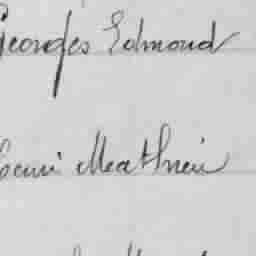 Georges Edmond
Henri Mathieu